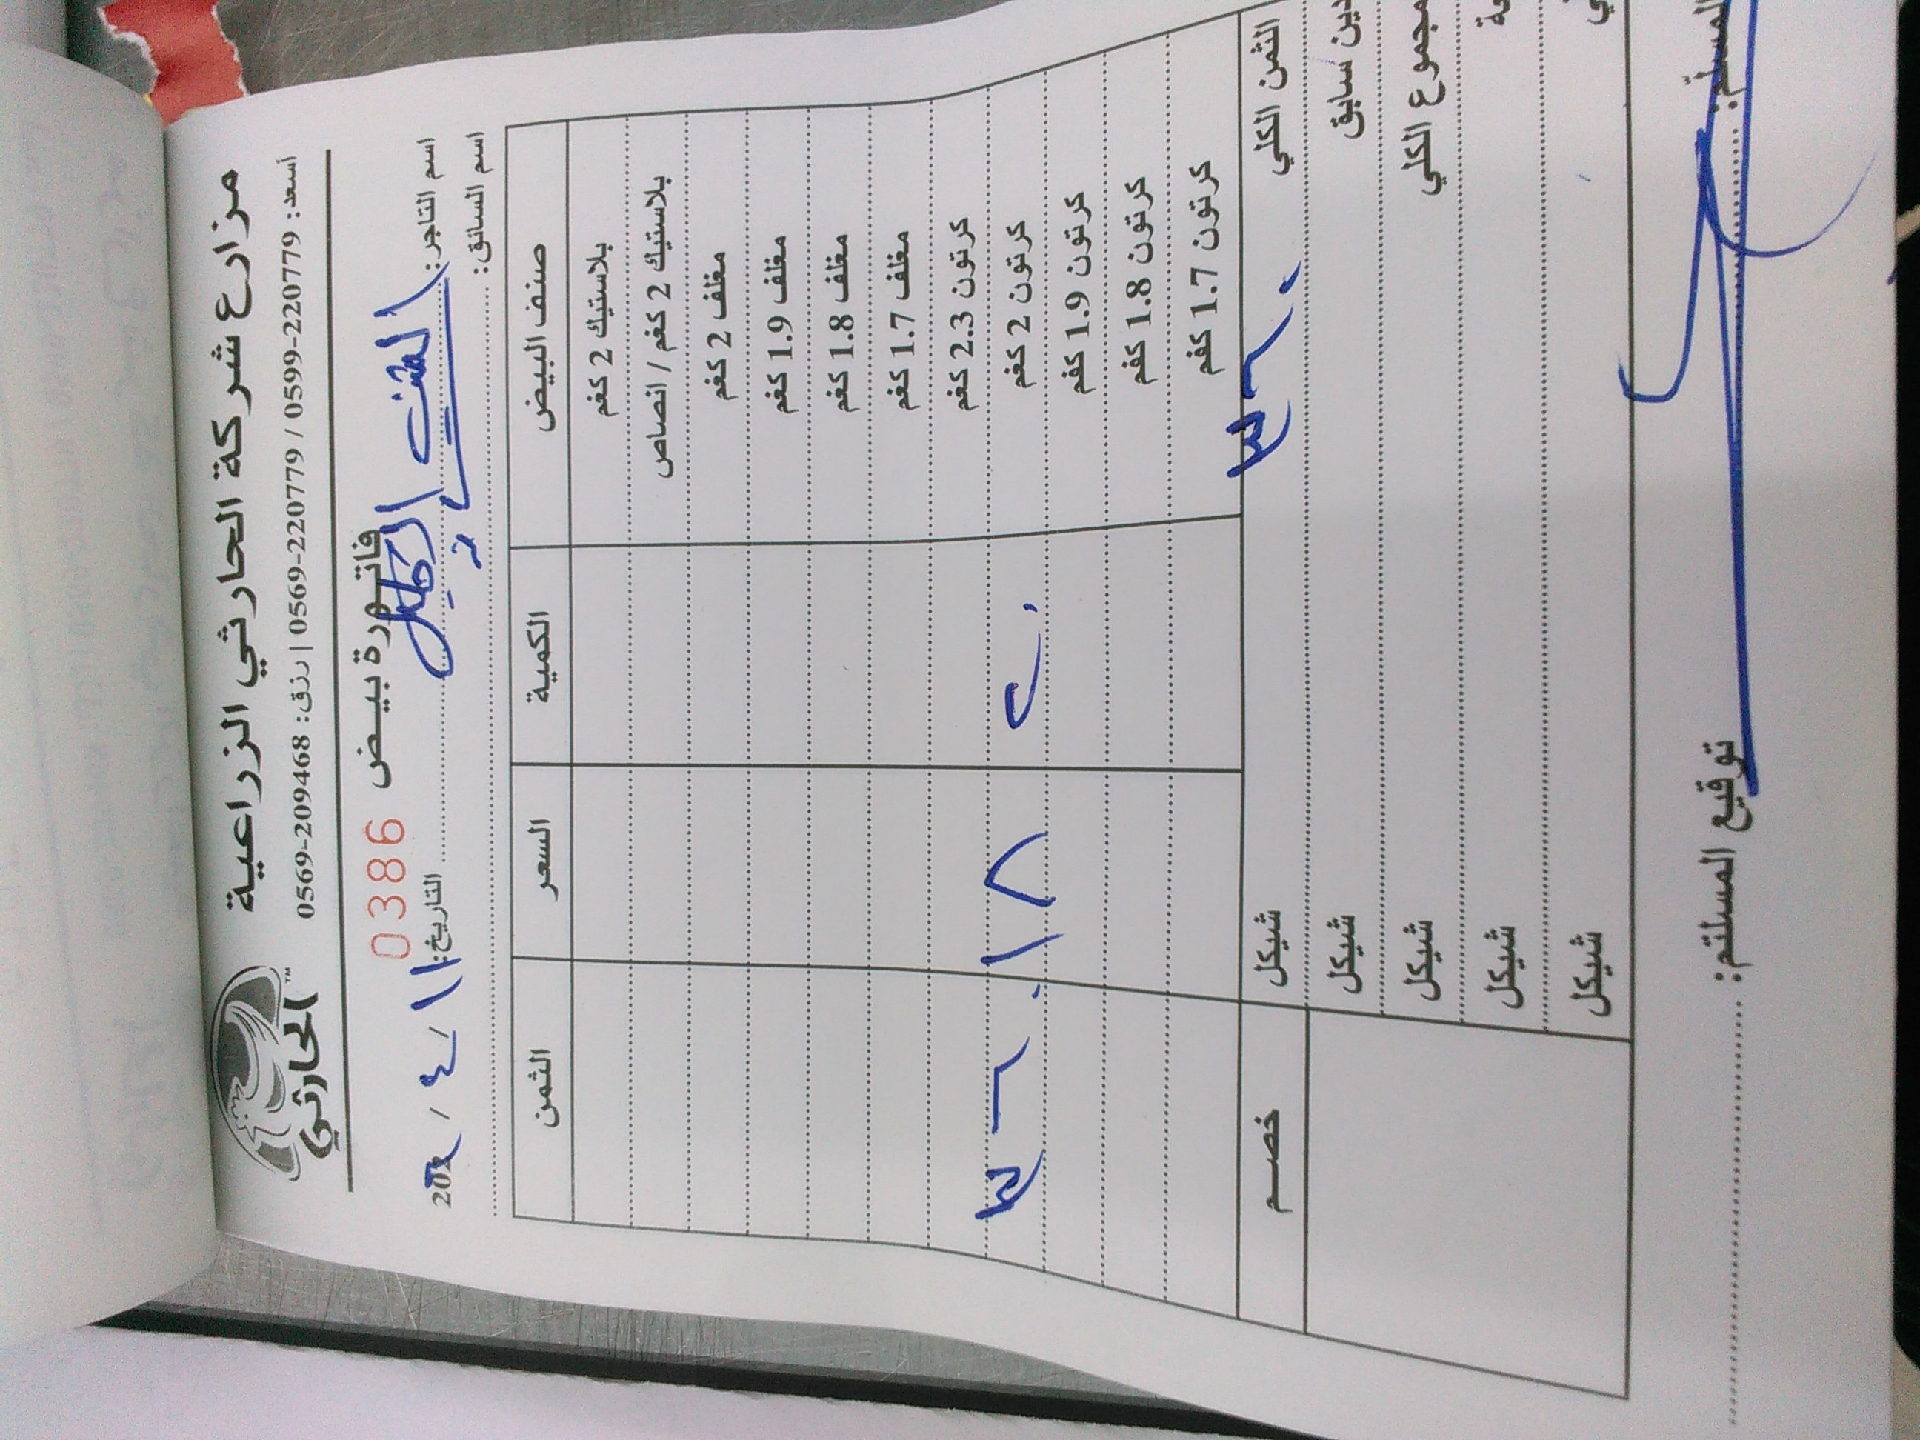 مزارع شركة الحارثي الزراعية
الحارثي™
أسعد: 0599-220779 / 0569-220779 | رزق: 0569-209468
فاتورة بيض 03866
اسم التاجر: التاريخ: ١١ / ٤ / 20
اسم السائق:
صنف البيض الكمية السعر الثمن
بلاستيك 2 كغم
بلاستيك 2 كغم / انصاص
مغلف 2 كغم
مغلف 1.9 كغم
مغلف 1.8 كغم
مغلف 1.7 كغم
كرتون 2.3 كغم
كرتون 2 كغم ٢٠ ١٨ ٣٦٠
كرتون 1.9 كغم
كرتون 1.8 كغم
كرتون 1.7 كغم
الثمن الكلي ٣٦٠ شيكل خصم
دين سابق شيكل
مجموع الكلي شيكل
شيكل
شيكل
المسلّم: توقيع المستلم: